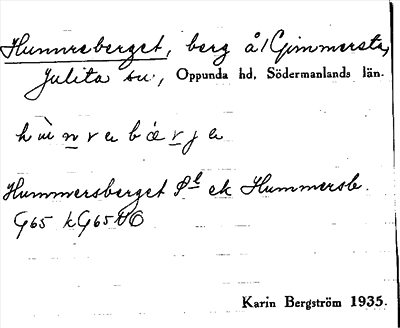 Hunnreberget, berg å/Gimmersta,
Julita sn, Oppunda hd, Södermanlands län.
hùnrebærje
Hummersberget ek Hummersb.
G65 kG65
Karin Bergström 1935.